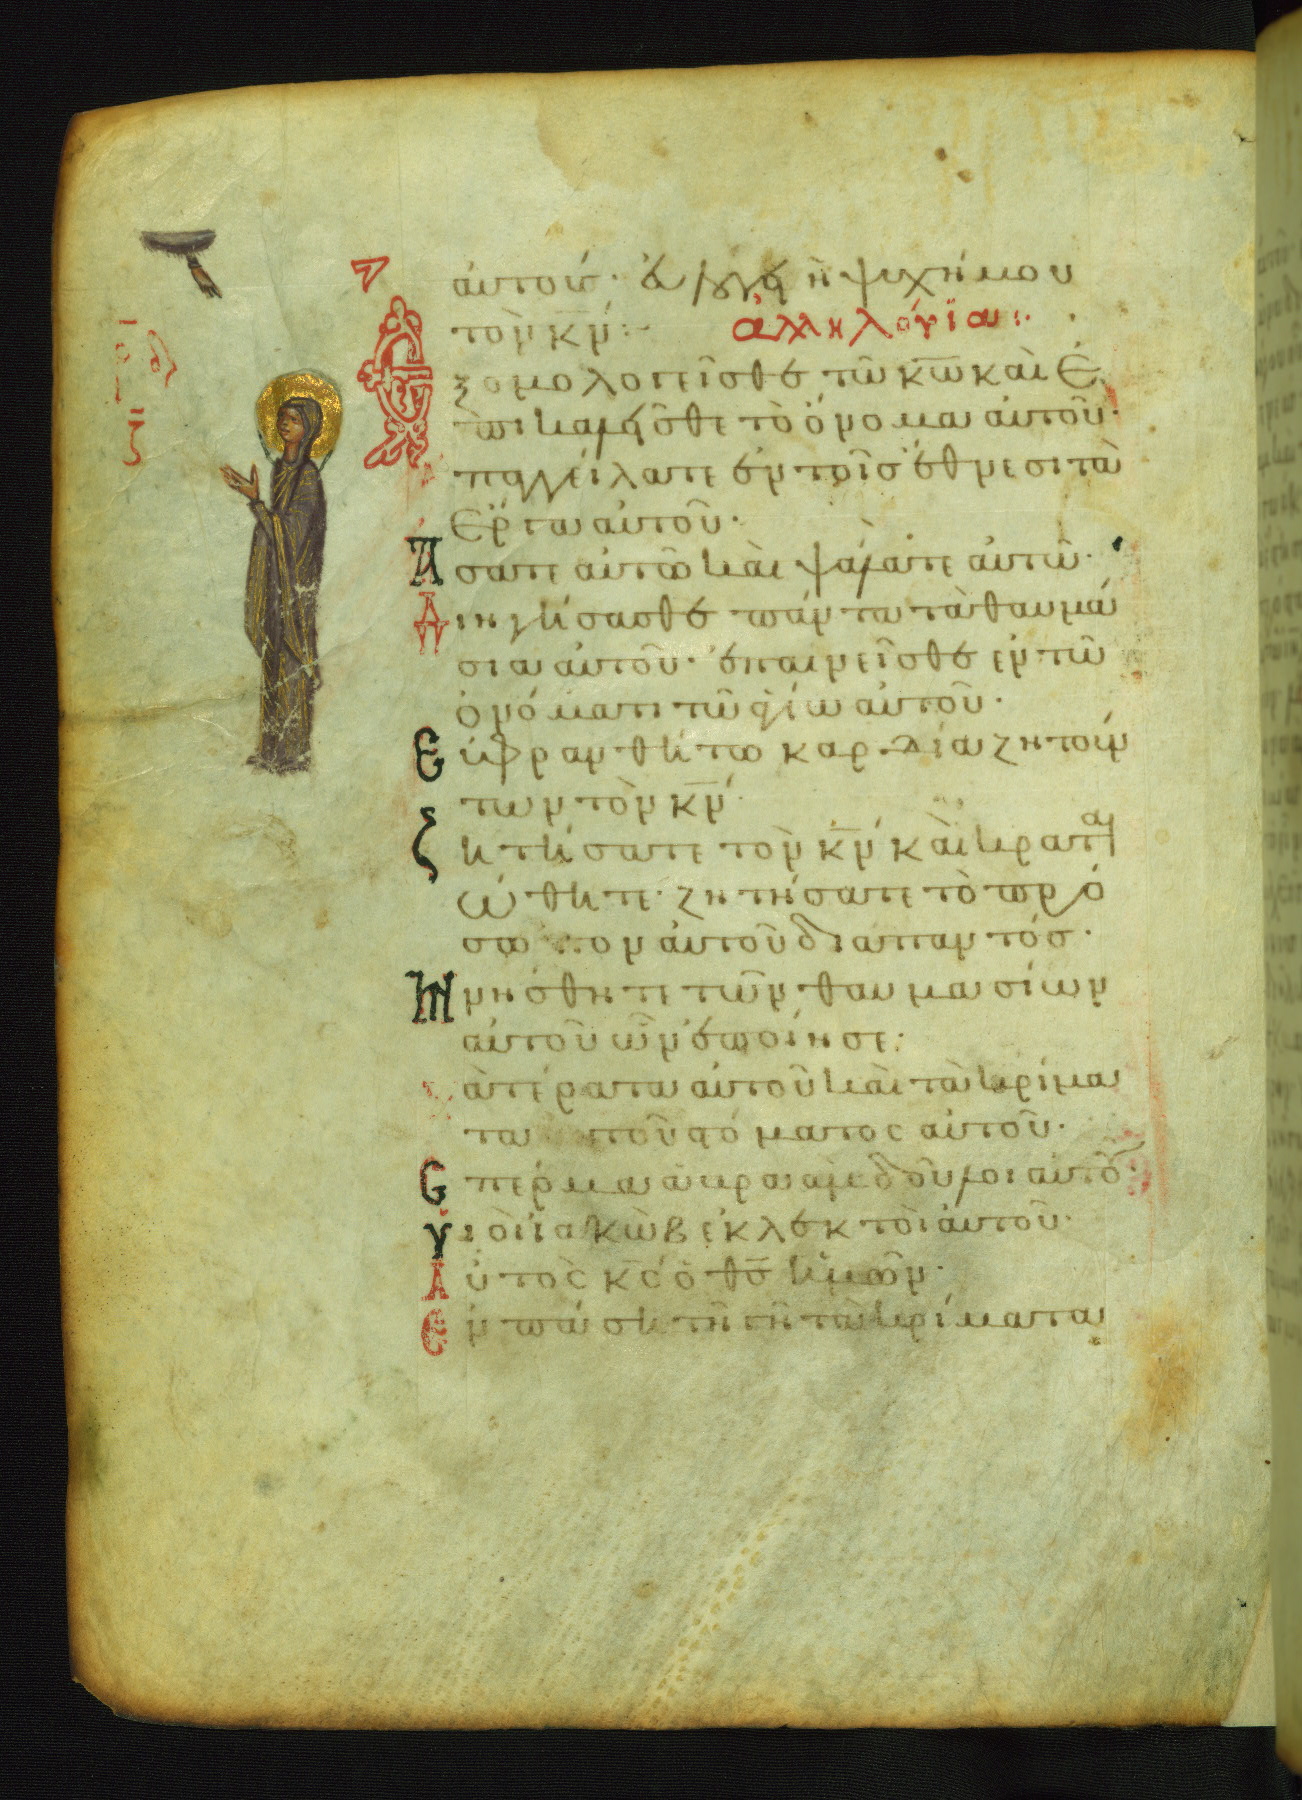 αὐτοῦ· εὐλόγει ἡ ψυχή μου
τὸν κ̅ν̅:~ ἀλληλούϊα:
Ἐξομολογεῖσθε τῶ κ̅ω̅ καὶ ἐ
πικαλεῖσθε τὸ ὄνομα αὐτοῦ·
παγγείλατε ἐν τοῖσ ἔθνεσι τὰ
ἔργα αὐτοῦ·
Ἄσατε αὐτῶ καὶ ψάλατε αὐτῶ·
Διηγήσασθε πάντα τὰ θαυμά
σια αὐτοῦ· ἐπαινεῖσθε ἐν τῶ
ὀνόματι τῶ ἁγίω αὐτοῦ·
Εὐφρανθήτω καρδία ζητούν
των τὸν κ̅ν̅·
Ζητήσατε τὸν κ̅ν̅ καὶ κραται
ώθητε· ζητήσατε τὸ πρό
σωπον αὐτοῦ διαπαντόσ·
Μνήσθητε τῶν θαυμασίων
αὐτοῦ ὧν ἐποίησε·
τὰ τέρατα αὐτοῦ καὶ τὰ κρίμα
τα τοῦ στόματος αὐτοῦ·
Σπέρμα ἀβραὰμ δοῦλοι αὐτοῦ·
Υἱοὶ ἰακὼβ ἐκλεκτοὶ αὐτοῦ·
Αὐτὸς κ̅ς̅ ὁ θ̅σ̅ ἡμῶν·
Ἐν πάση τῆ γῆ τὰ κρίματα